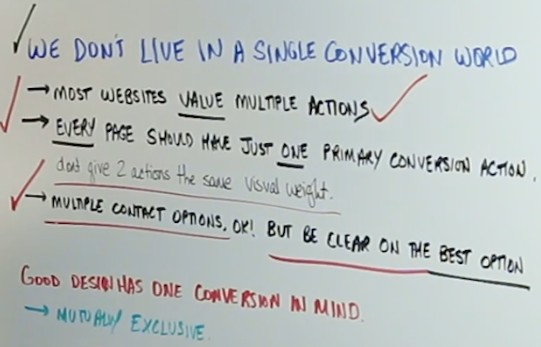 WE DON'T LIVE IN A SINGLE CONVERSION WORLD
→ MOST WEBSITES VALUE MULTIPLE ACTIONS
→ EVERY PAGE SHOULD HAVE JUST ONE PRIMARY CONVERSION ACTION.
dont give 2 actions the same visual weight.
→ MULTIPLE CONTACT OPTIONS. OK! BUT BE CLEAR ON THE BEST OPTION
GOOD DESIN HAS ONE CONVERSION IN MIND.
→ MUTUALLY EXCLUSIVE.